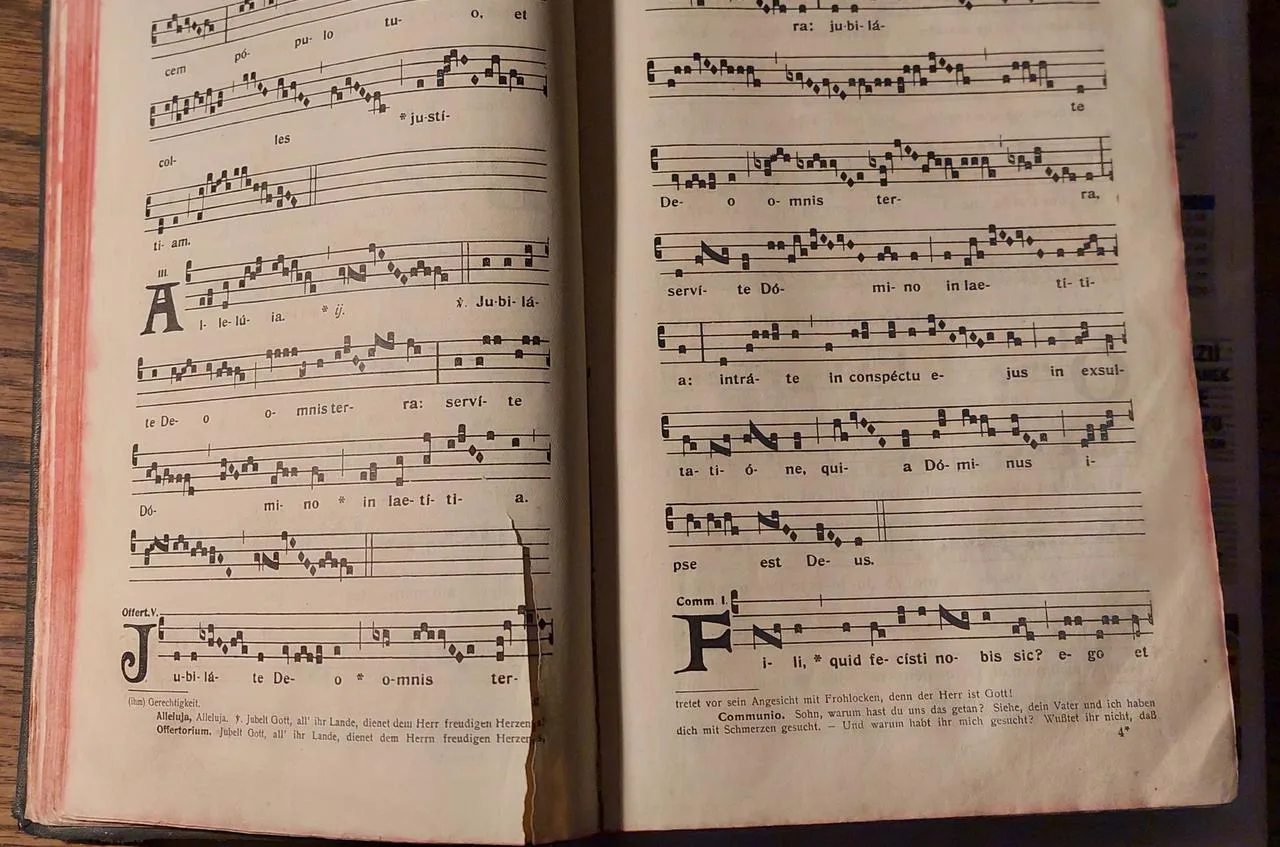 cem pó- pu- lo tu- o, et
col- les * ju-stí-
ti- am.
III.
Al- le- lú- ia. * ij. ℣. Ju-bi-lá-
te De- o o- mnis ter- ra: serví- te
Dó- mi- no * in lae- tí- ti- a.
Offert. V.
Ju-bi-lá- te De- o * o-mnis ter-
(ihm) Gerechtigkeit.
Alleluja, Alleluja. ℣. Jubelt Gott, all' ihr Lande, dienet dem Herr freudigen Herzens
Offertorium. Jubelt Gott, all' ihr Lande, dienet dem Herrn freudigen Herzens,
ra: ju-bi-lá-
te
De- o o- mnis ter- ra,
serví- te Dó- mi- no in lae- tí- ti-
a: intrá- te in conspéctu e- jus in exsul-
ta- ti- ó- ne, qui- a Dó- mi- nus i-
pse est De- us.
Comm. I.
Fi- li, * quid fe- císti no- bis sic? e- go et
tretet vor sein Angesicht mit Frohlocken, denn der Herr ist Gott!
Communio. Sohn, warum hast du uns das getan? Siehe, dein Vater und ich haben
dich mit Schmerzen gesucht. — Und warum habt ihr mich gesucht? Wußtet ihr nicht, daß
4*